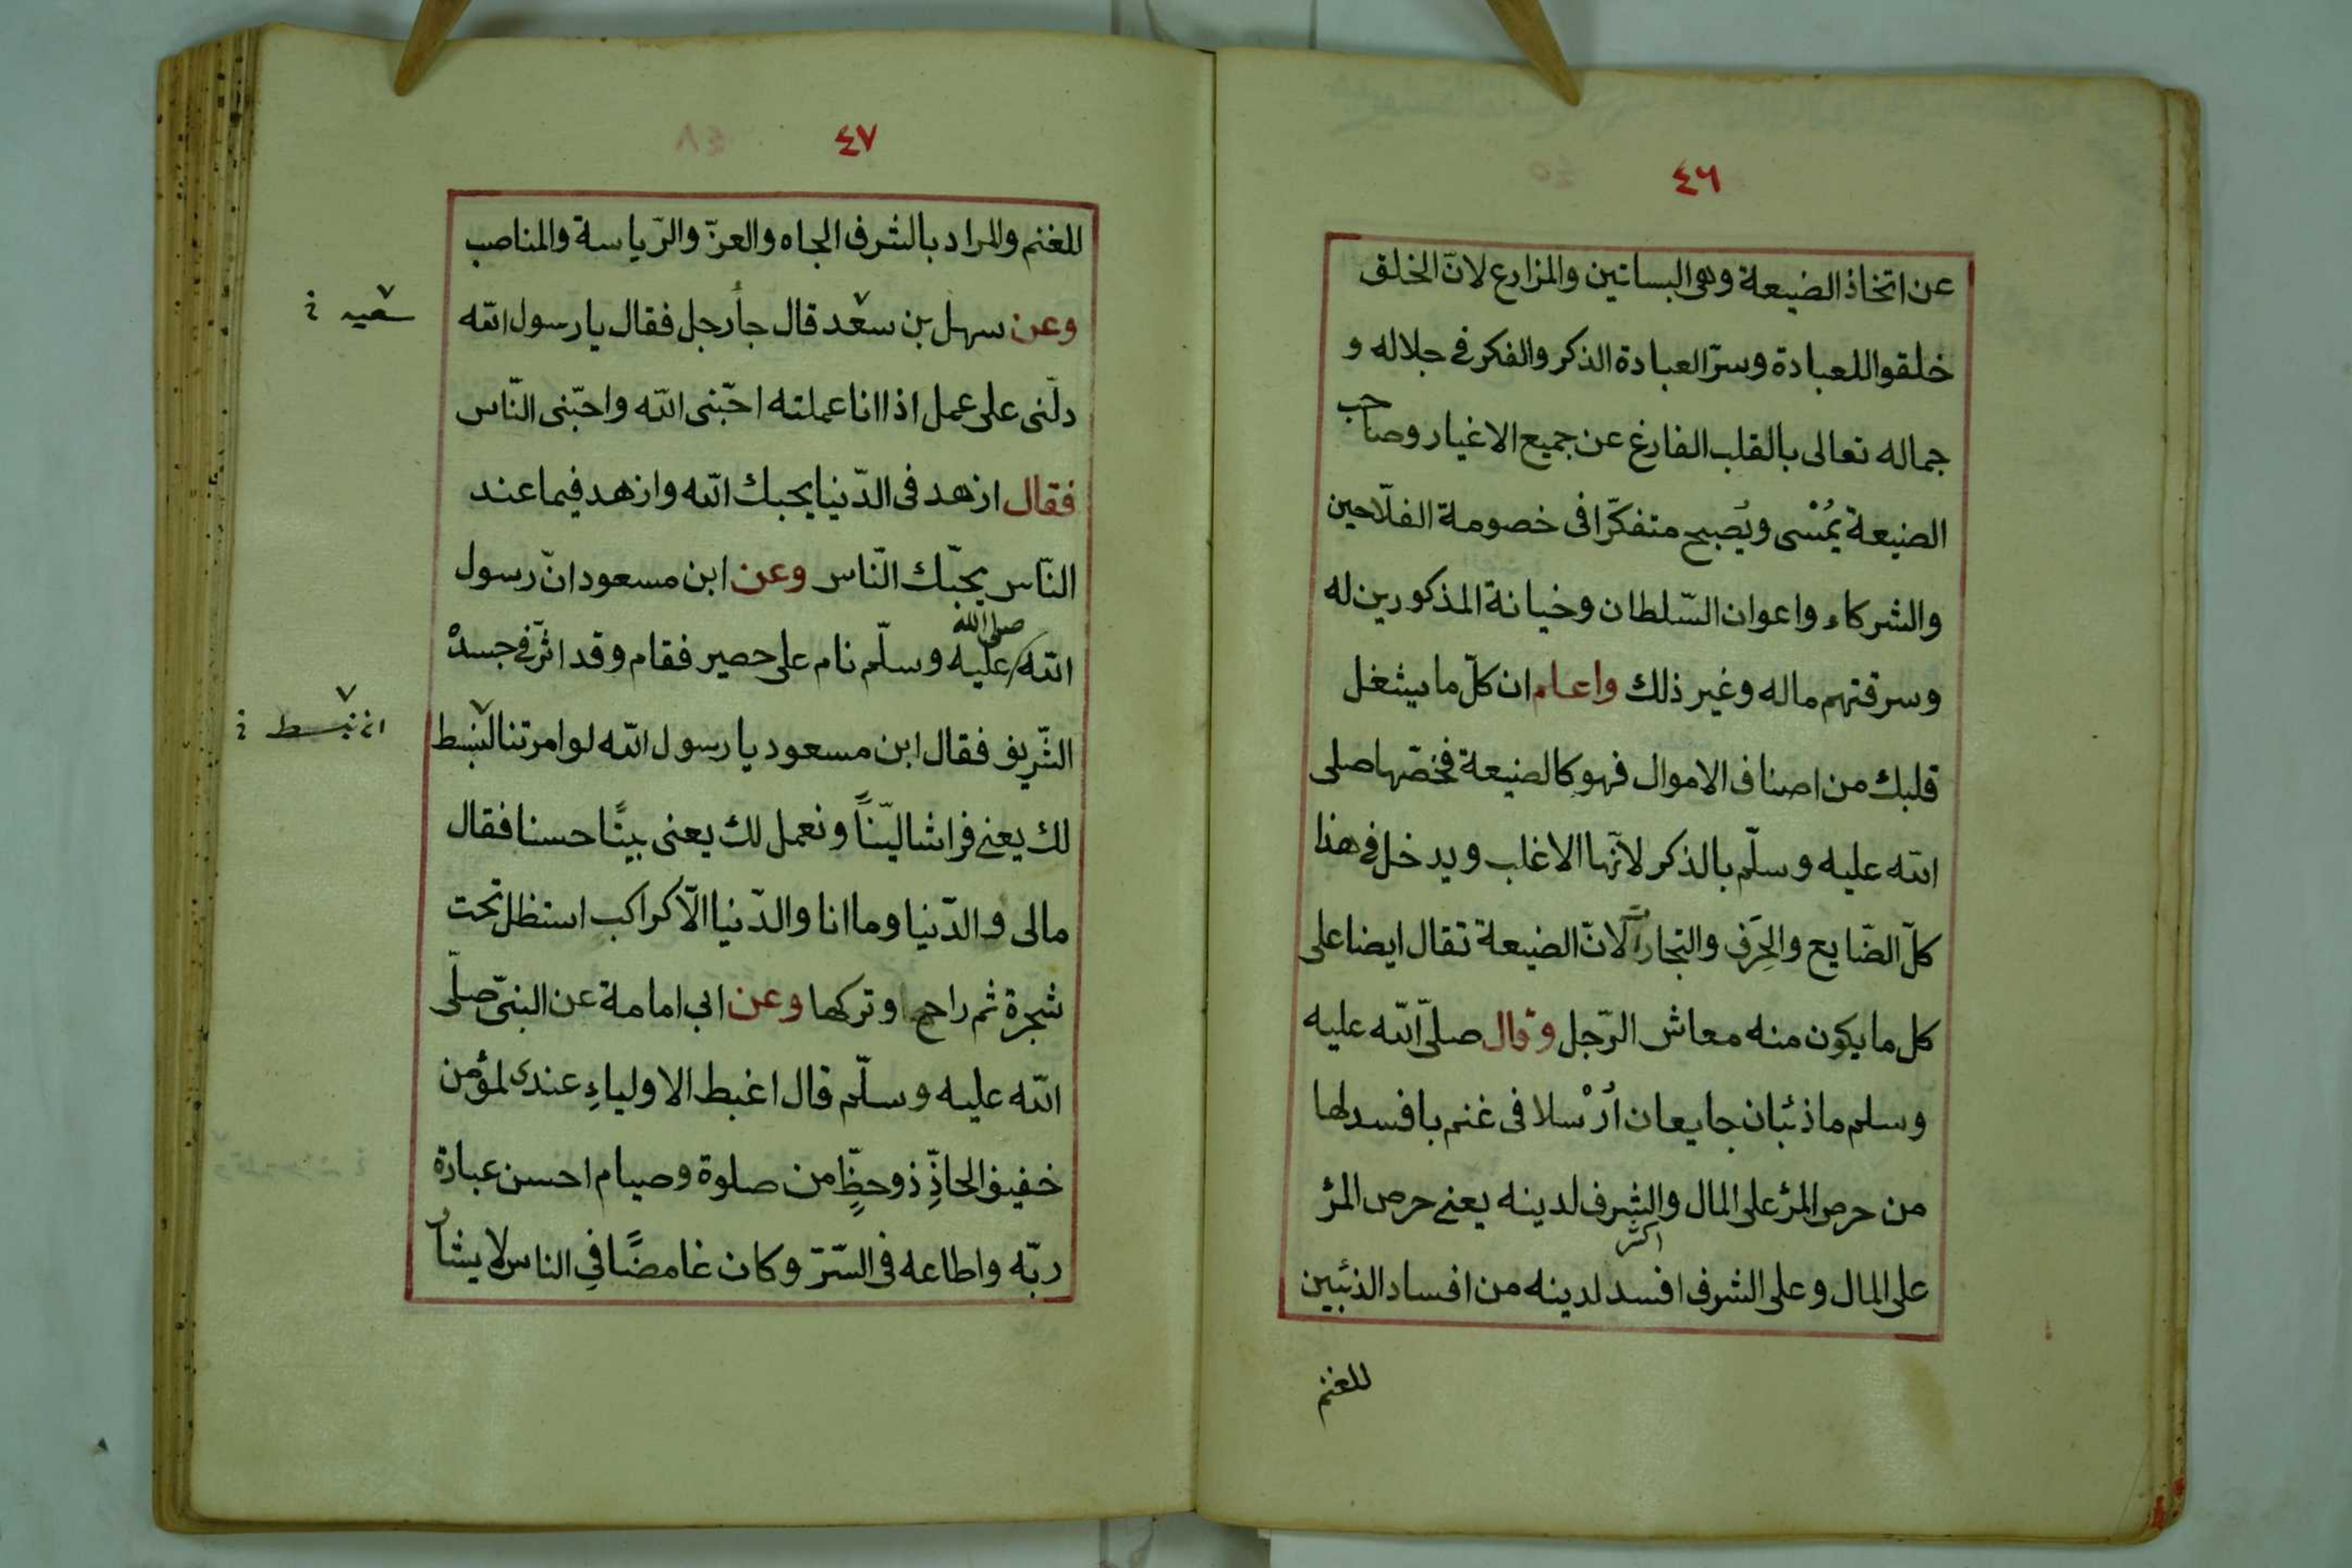 ٤٦
عن اتخاذ الضيعة وهى البساتين والمزارع لانّ الخلق
خلقوا للعبادة وسرّ العبادة الذكر والفكر فى جلاله و
جماله تعالى بالقلب الفارغ عن جميع الاغيار وصاحب
الضيعة يُمْسى ويُصبح متفكّرا فى خصومة الفلّاحين
والشركاء واعوان السّلطان وخيانة المذكورين له
وسرقتهم ماله وغير ذلك واعلم ان كلّ ما يشغل
قلبك من اصناف الاموال فهو كالضيعة فخصّها صلى
الله عليه وسلّم بالذكر لانّها الاغلب ويدخل فى هذا
كلّ الضّايع والحِرَف والتجارات لانّ الضيعة تقال ايضا على
كل ما يكون منه معاش الرّجل وقال صلىّ الله عليه
وسلم ماذئبان جايعان اُرْسلا فى غنم بافسد لها
من حرص المرٔ على المال والشرف لدينه يعنى حرص المرٔ
على المال وعلى الشرف اكثر افسد لدينه من افساد الذئبين
للغنم
٤٧
للغنم والمراد بالشرف الجاه والعزّ والرّياسة والمناصب
وعن سهل بن سعد قال جأ رجل فقال يا رسول الله
سعيد
دلّنى على عمل اذا انا عملته احبّنى الله واحبّنى النّاس
فقال ازهد فى الدّنيا يحبك الله وازهد فيما عند
النّاس يحبّك النّاس وعن ابن مسعود انّ رسول
الله صلى الله عليه وسلّم نام على حصير فقام وقد اثّر فى جسده
الشّريف فقال ابن مسعود يا رسول الله لو امرتنا لنبسط
ان نبسط
لك يعنى فراشا ليّناً ونعمل لك يعنى بيتًا حسنا فقال
مالى والدّنيا وما انا والدّنيا الّا كراكب استظل تحت
شجرة ثم راح وتركها وعن ابى امامة عن النبىّ صلّى
الله عليه وسلّم قال اغبط الاولياءِ عندى لمؤمن
خفيف الحاذِّ ذو حظٍّ من صلوة وصيام احسن عبادة
ربّه واطاعه فى السّرّ وكان غامضًا فى الناس لا يشار